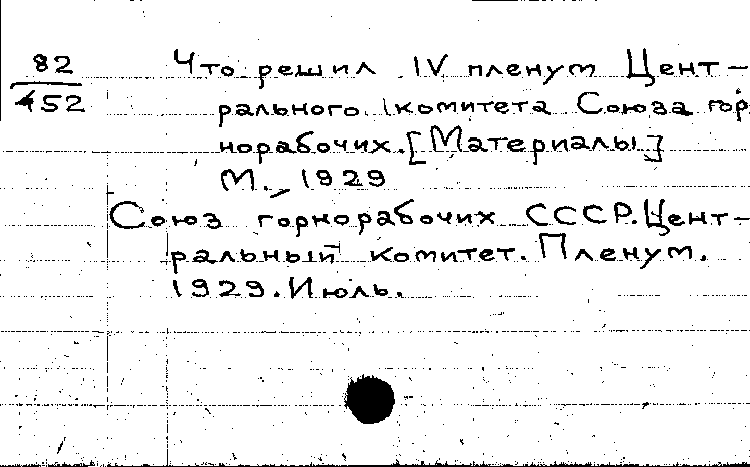 82
452
Что решил IV пленум Цент-
рального комитета Союза гор
норабочих. [Материалы]
М., 1929
Союз горнорабочих СССР. Цент-
ральный комитет. Пленум.
1929. Июль.